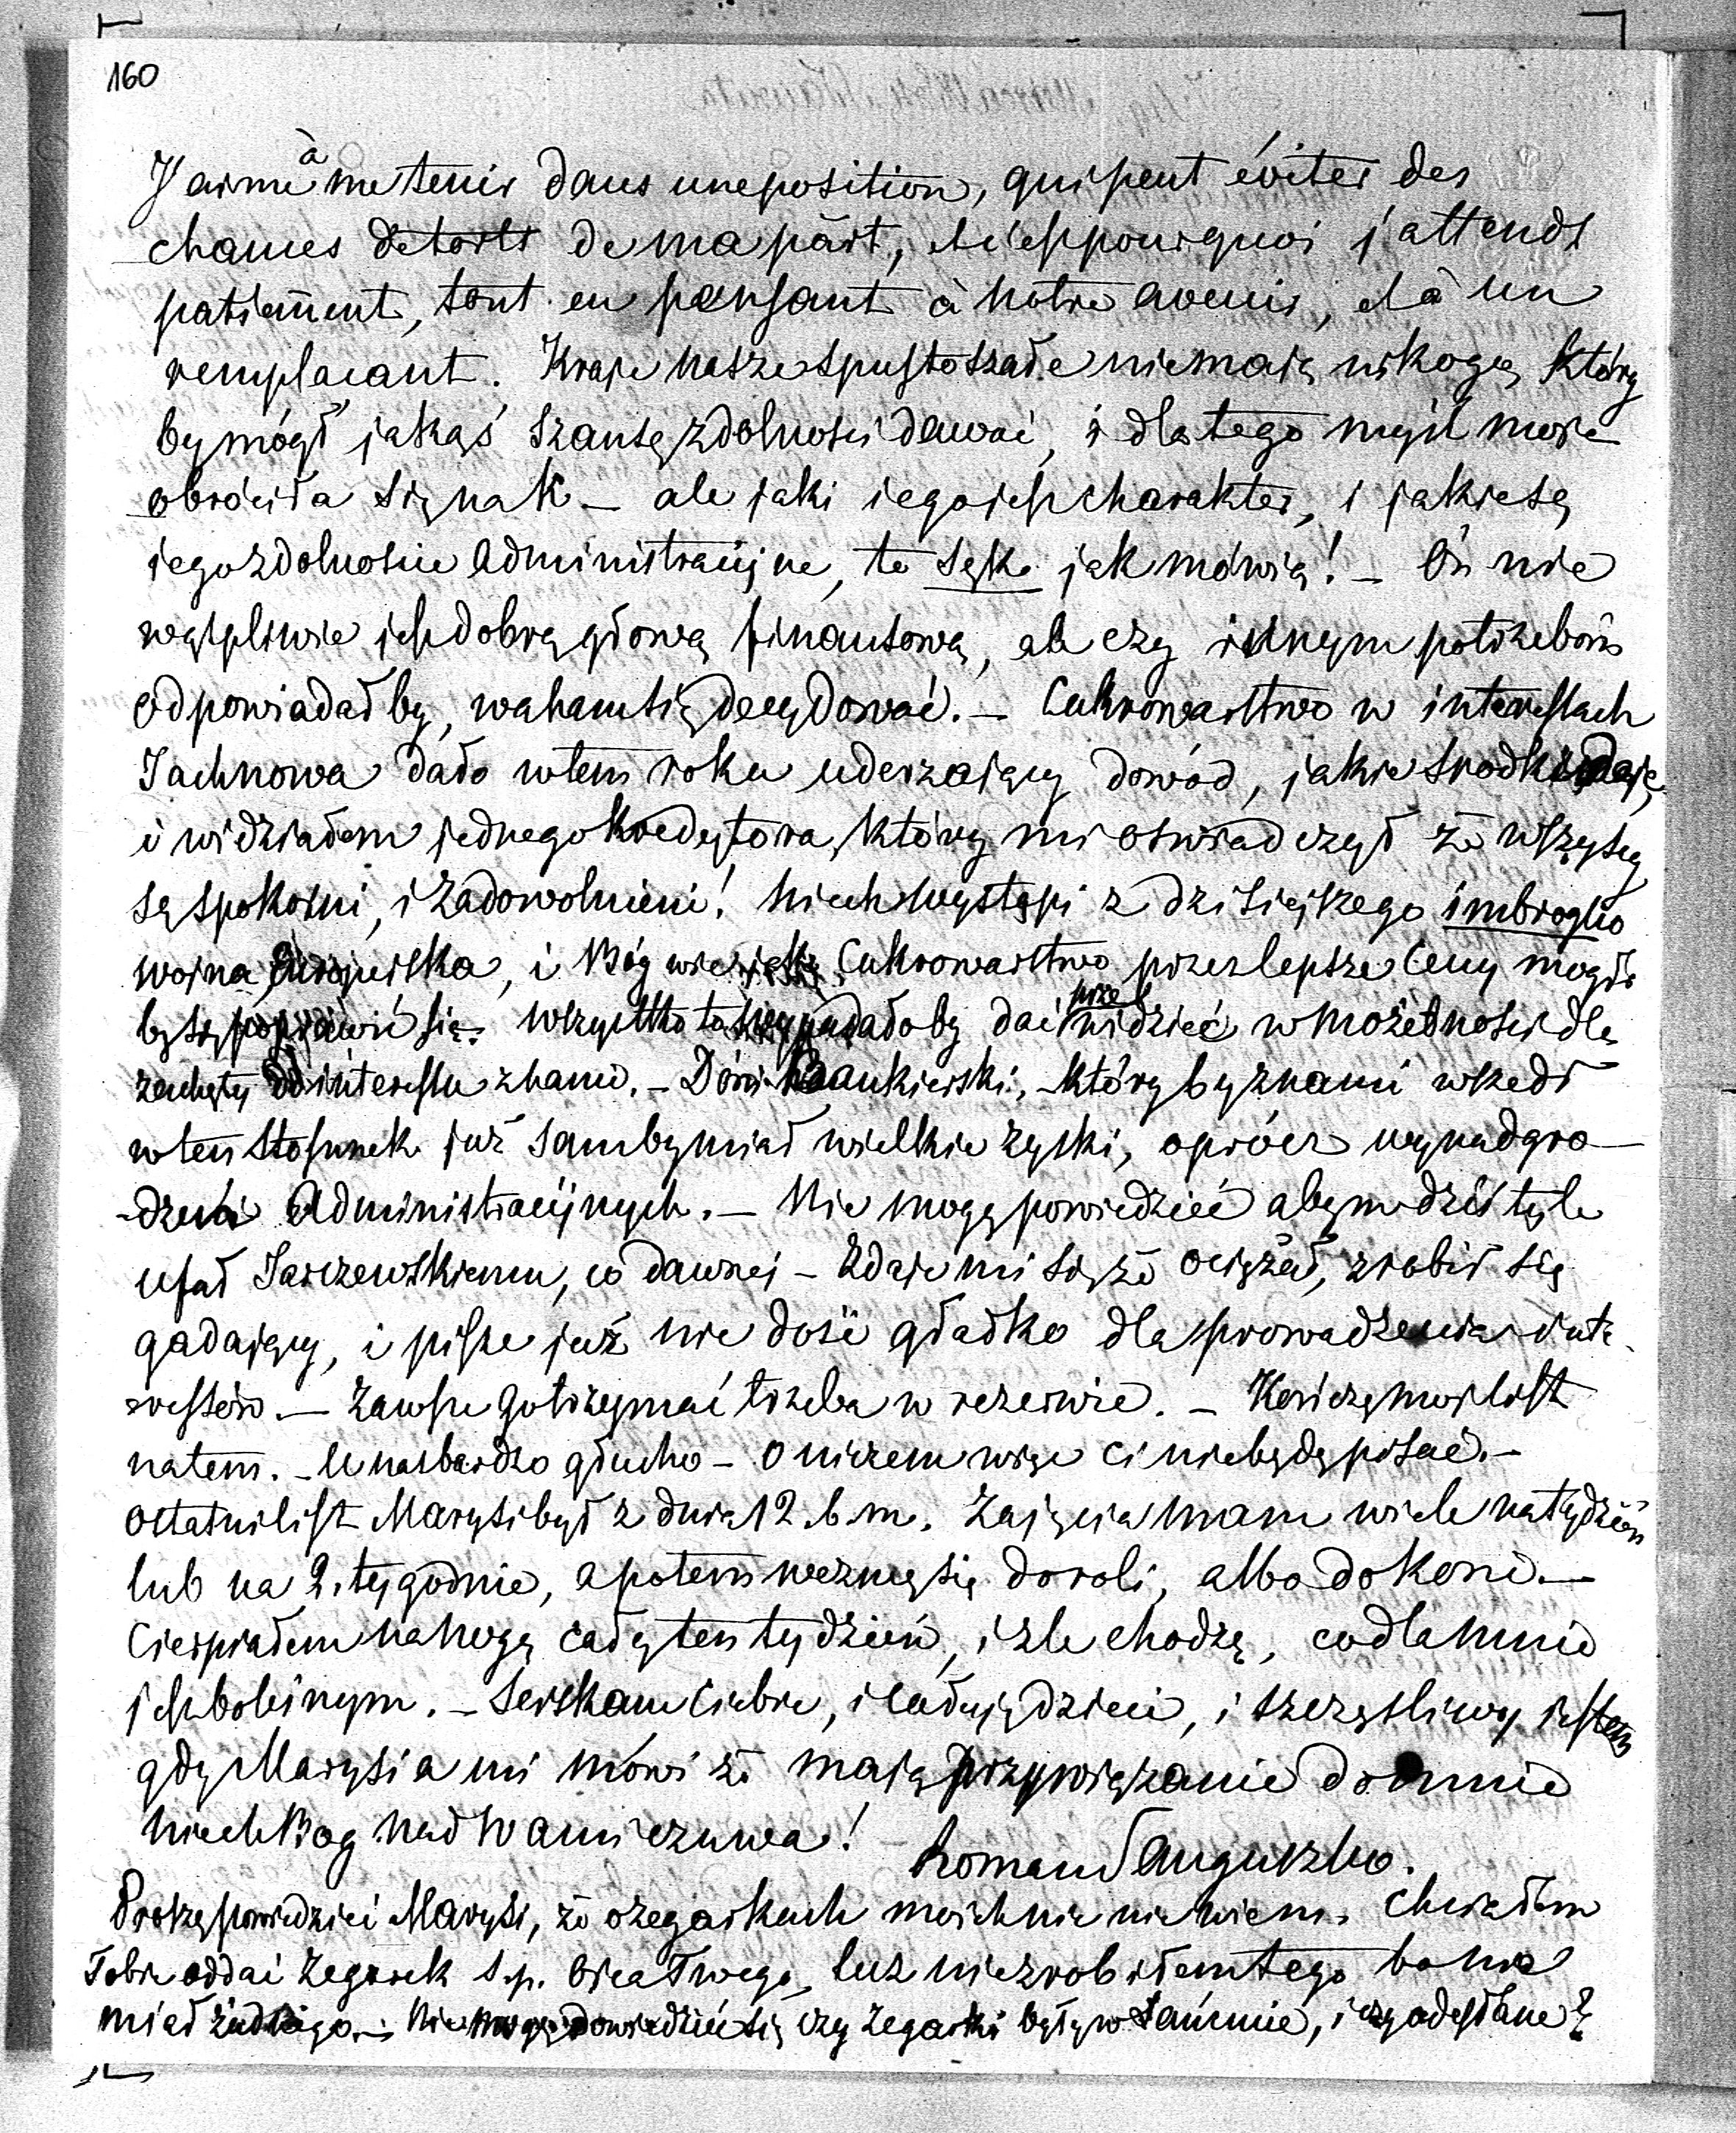 160
J'aime à me tenir dans une position, qui peut éviter des
chances de torts de ma part, et c'est pourquoi j'attends
patiemment, tout en pensant à notre avenir, et à un
remplacant. Kraje nasze spustoszałe nie mają nikogo, który
by mógł jakąś szansę zdolności dawać, i dla tego myśl moja
obróciła się na K – ale jaki iego iest charakter, i jakie są
iego zdolnoście administracijne, to sęk jak mówią! – On nie
wątpliwie jest dobrą głową finansową, ale czy innym potrzebom
odpowiadałby, waham się decydować. – Cukrowarstwo w interessach
Jachnowa dało w tem roku uderzający dowód, jakie srodki daje,
i widziałem jednego kredytora, który mi oswiadczył że wszyscy
są spokoini, i zadowolnieni! Niech wystąpi z dzisiejszego imbroglio
woina Europeiska, i Bóg wie Cukrowarstwo przez lepsze Ceny mogło
by się poprawić się. Wszystko to wypadałoby dać przewidzieć w możebności dla
zachęty do interessu z nami. – Dom Bankierski, któryby z nami wszedł
w ten stosunek już sam by miał wielkie zyski, oprócz wynadgro-
-dzeń administracijnych. – Nie mogę powiedzieć abym dziś tyle
ufał Jarczewskiemu, co dawniej – Zdaje mi się że ociężał, zrobił się
gadający, i pisze już nie dość gładko dla prowadzenia inte-
-ressów. – Zawsze go trzymać trzeba w rezerwie. – Kończę moj list
na tem. – U nas bardzo głucho – o niczem więc ci nie będę pisać. –
Ostatni list Marysi był z dnia 12. b. m. Zajęcia mam wiele na tydzień
lub na 2. tygodnie, a potem wezmę się do roli, albo do koni. –
Cierpiałem na nogę cały ten tydzień, i zle chodzę, co dla mnie
jest bolesnym. – Sciskam Ciebie, i całuję dzieci, i szczęsliwy jestem
gdy Marysia mi mówi że mają przywiązanie do mnie
niech Bog nad Wami czuwa!
Roman Sanguszko.
Proszę powiedzieć Marysi, że o zegarkach moich nic nie wiem. Chciałem
Tobie oddać zegarek s. p. Ojca Twego, lecz nie zrobiłem tego bo nie
miał żadnego. – Nie mogę dowiedzieć się czy zegarki były w Łańcucie, i czy odesłane?